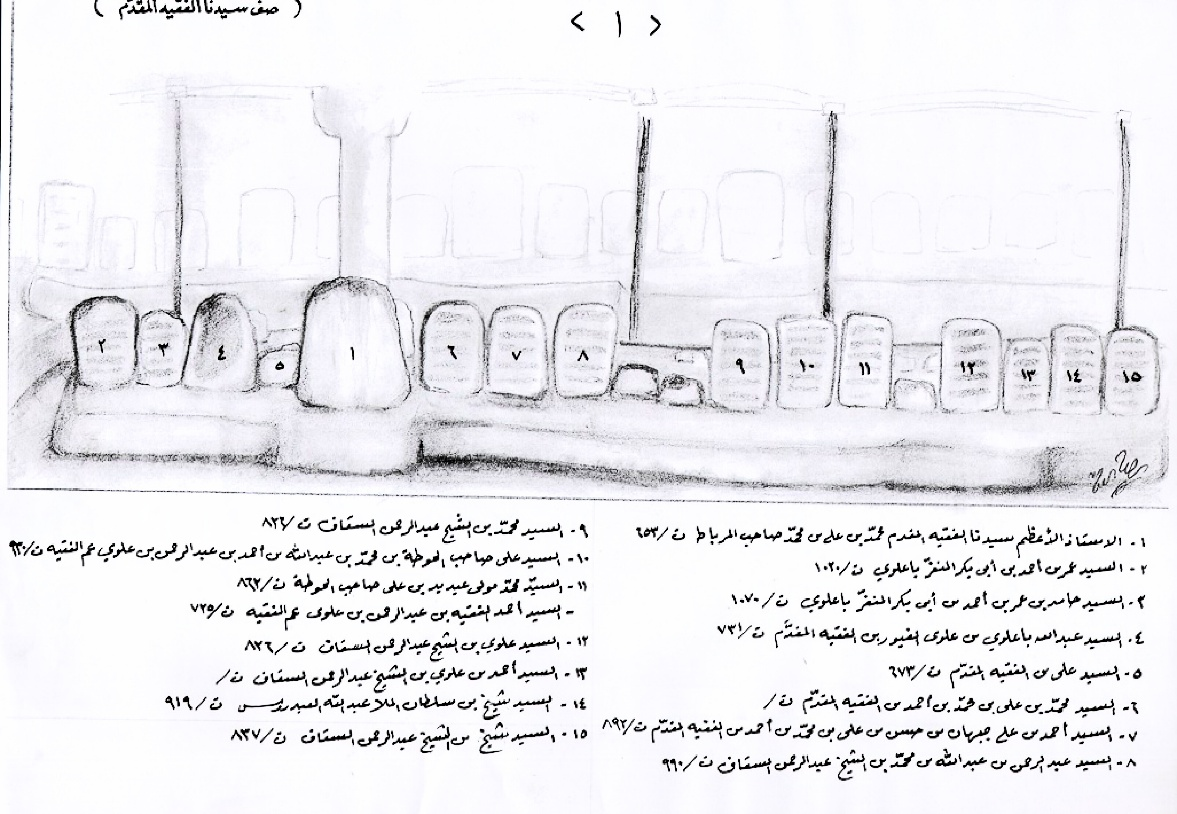 ( صف سيدنا الفقيه المقدّم )
< ١ >
٢ ٣ ٤ ٥ ١ ٦ ٧ ٨ ٩ ١٠ ١١ ١٢ ١٣ ١٤ ١٥
١- الاستاذ الأعظم سيدنا الفقيه المقدم محمّد بن علي بن محمّد صاحب المرباط ت/٦٥٣
٢- السيد عمر بن أحمد بن أبي بكر المنفّر باعلوي ت/١٠٢٠
٣- السيد حامد بن عمر بن أحمد بن أبي بكر المنفّر باعلوي ت/١٠٧٠
٤- السيد عبدالله باعلوي بن علوي الغيور بن الفقيه المقدّم ت/٧٣١
٥- السيد علي بن الفقيه المقدّم ت/٦٧٣
٦- السيد محمّد بن علي بن محمّد بن أحمد بن الفقيه المقدّم ت/
٧- السيد أحمد بن علي بن حسن بن علي بن محمّد بن أحمد بن الفقيه المقدّم ت/٨٩٢
٨- السيد عبدالرحمن بن عبدالله بن محمّد بن الشيخ عبدالرحمن السقاف ت/٩٩٠
٩- السيد محمّد بن الشيخ عبدالرحمن السقاف ت/٨٢٦
١٠- السيد علي صاحب الحوطة بن محمّد بن عبدالله بن أحمد بن عبدالرحمن بن علوي عم الفقيه ت/
١١- السيّد محمّد مولى عيديد بن علي صاحب الحوطة ت/٨٦٢
- السيد أحمد الفقيه بن عبدالرحمن بن علوي عم الفقيه ت/٧٢٥
١٢- السيد علوي بن الشيخ عبدالرحمن السقاف ت/٨٢٦
١٣- السيد أحمد بن علوي بن الشيخ عبدالرحمن السقاف ت/
١٤- السيد شيخ بن سلطان الملا عبدالله العيدروس ت/٩١٩
١٥- السيد شيخ بن الشيخ عبدالرحمن السقاف ت/٨٣٧